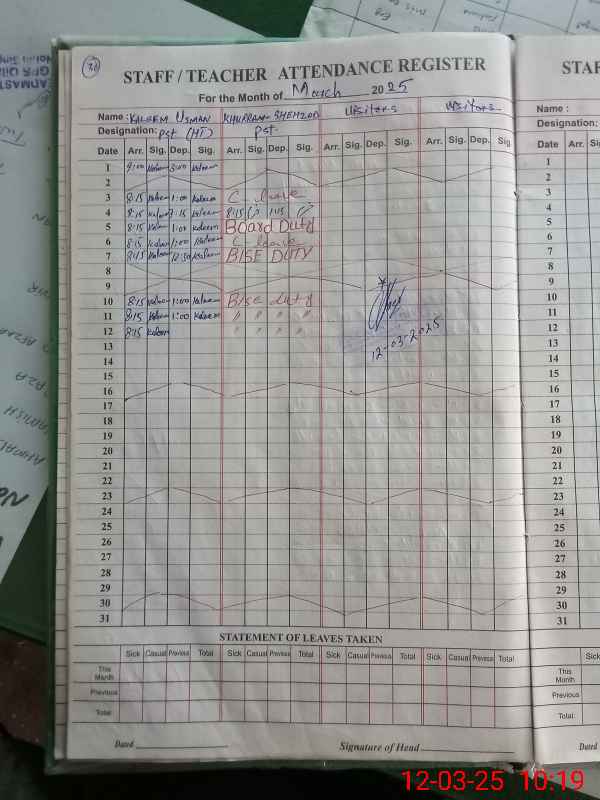 STAFF / TEACHER ATTENDANCE REGISTER
For the Month of March 2025
Name : KALEEM USMAN KHURRAM SHEHZAD Visitors Visitors
Designation: Pst (HT) Pst
Date Arr. Sig. Dep. Sig. Arr. Sig. Dep. Sig. Arr. Sig. Dep. Sig. Arr. Sig. Dep. Sig.
1 9:00 Kaleem 3:00 Kaleem
2
3 8:15 Kaleem 1:00 Kaleem C leave
4 8:15 Kaleem 1:15 Kaleem 8:15 1:15
5 8:15 Kaleem 1:00 Kaleem Board Duty
6 8:15 Kaleem 1:00 Kaleem C leave
7 8:15 Kaleem 12:30 Kaleem BISE DUTY
8
9
10 8:15 Kaleem 1:00 Kaleem Bise duty
11 8:15 Kaleem 1:00 Kaleem " " " "
12 8:15 Kaleem " " " "
12-03-2025
13
14
15
16
17
18
19
20
21
22
23
24
25
26
27
28
29
30
31
STATEMENT OF LEAVES TAKEN
Sick Casual Previous Total Sick Casual Previous Total Sick Casual Previous Total Sick Casual Previous Total
This Month
Previous
Total
Dated Signature of Head
STAF
Name :
Designation:
Date Arr. Sig.
1
2
3
4
5
6
7
8
9
10
11
12
13
14
15
16
17
18
19
20
21
22
23
24
25
26
27
28
29
30
31
Sick Casual
This Month
Previous
Total
Dated
12-03-25 10:19